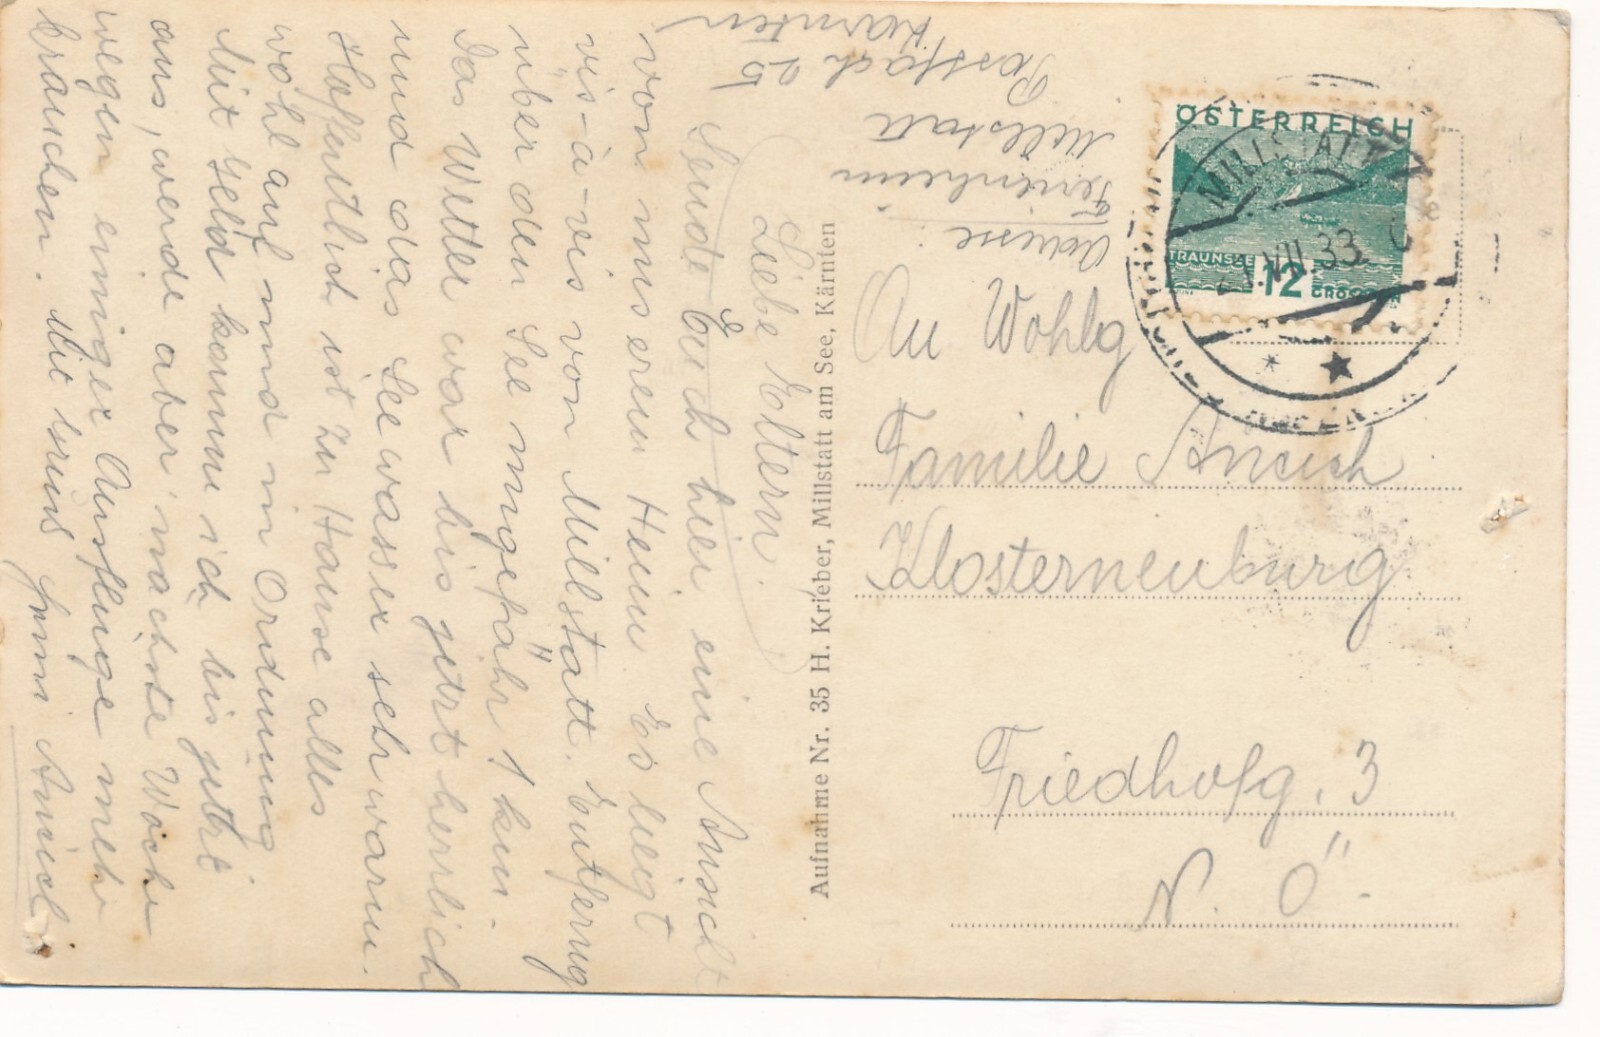 Liebe Eltern.
Sende Euch hier eine Ansicht
von unserem Heim. Es liegt
vis-à-vis von Millstatt. Entferng
über den See ungefähr 1 km.
Das Wetter war bis jetzt herrlich
und das Seewasser sehr warm.
Hoffentlich ist zu Hause alles
wohlauf und in Ordnung
Mit Geld kamm ich bis jetzt
aus, werde aber nächste Woche
wegen einiger Ausfluge mehr
brauchen. Mit Gruß
Adresse:
Ferienheim
Millstatt
Postfach 25
Kärnten
Aufnahme Nr. 35 H. Krieber, Millstatt am See, Kärnten
ÖSTERREICH
TRAUNSEE
12
GROSCHEN
MILLSTATT
VII. 33
An Wohlg
Familie Ancich
Klosterneuburg
Friedhofg. 3
N. Ö.